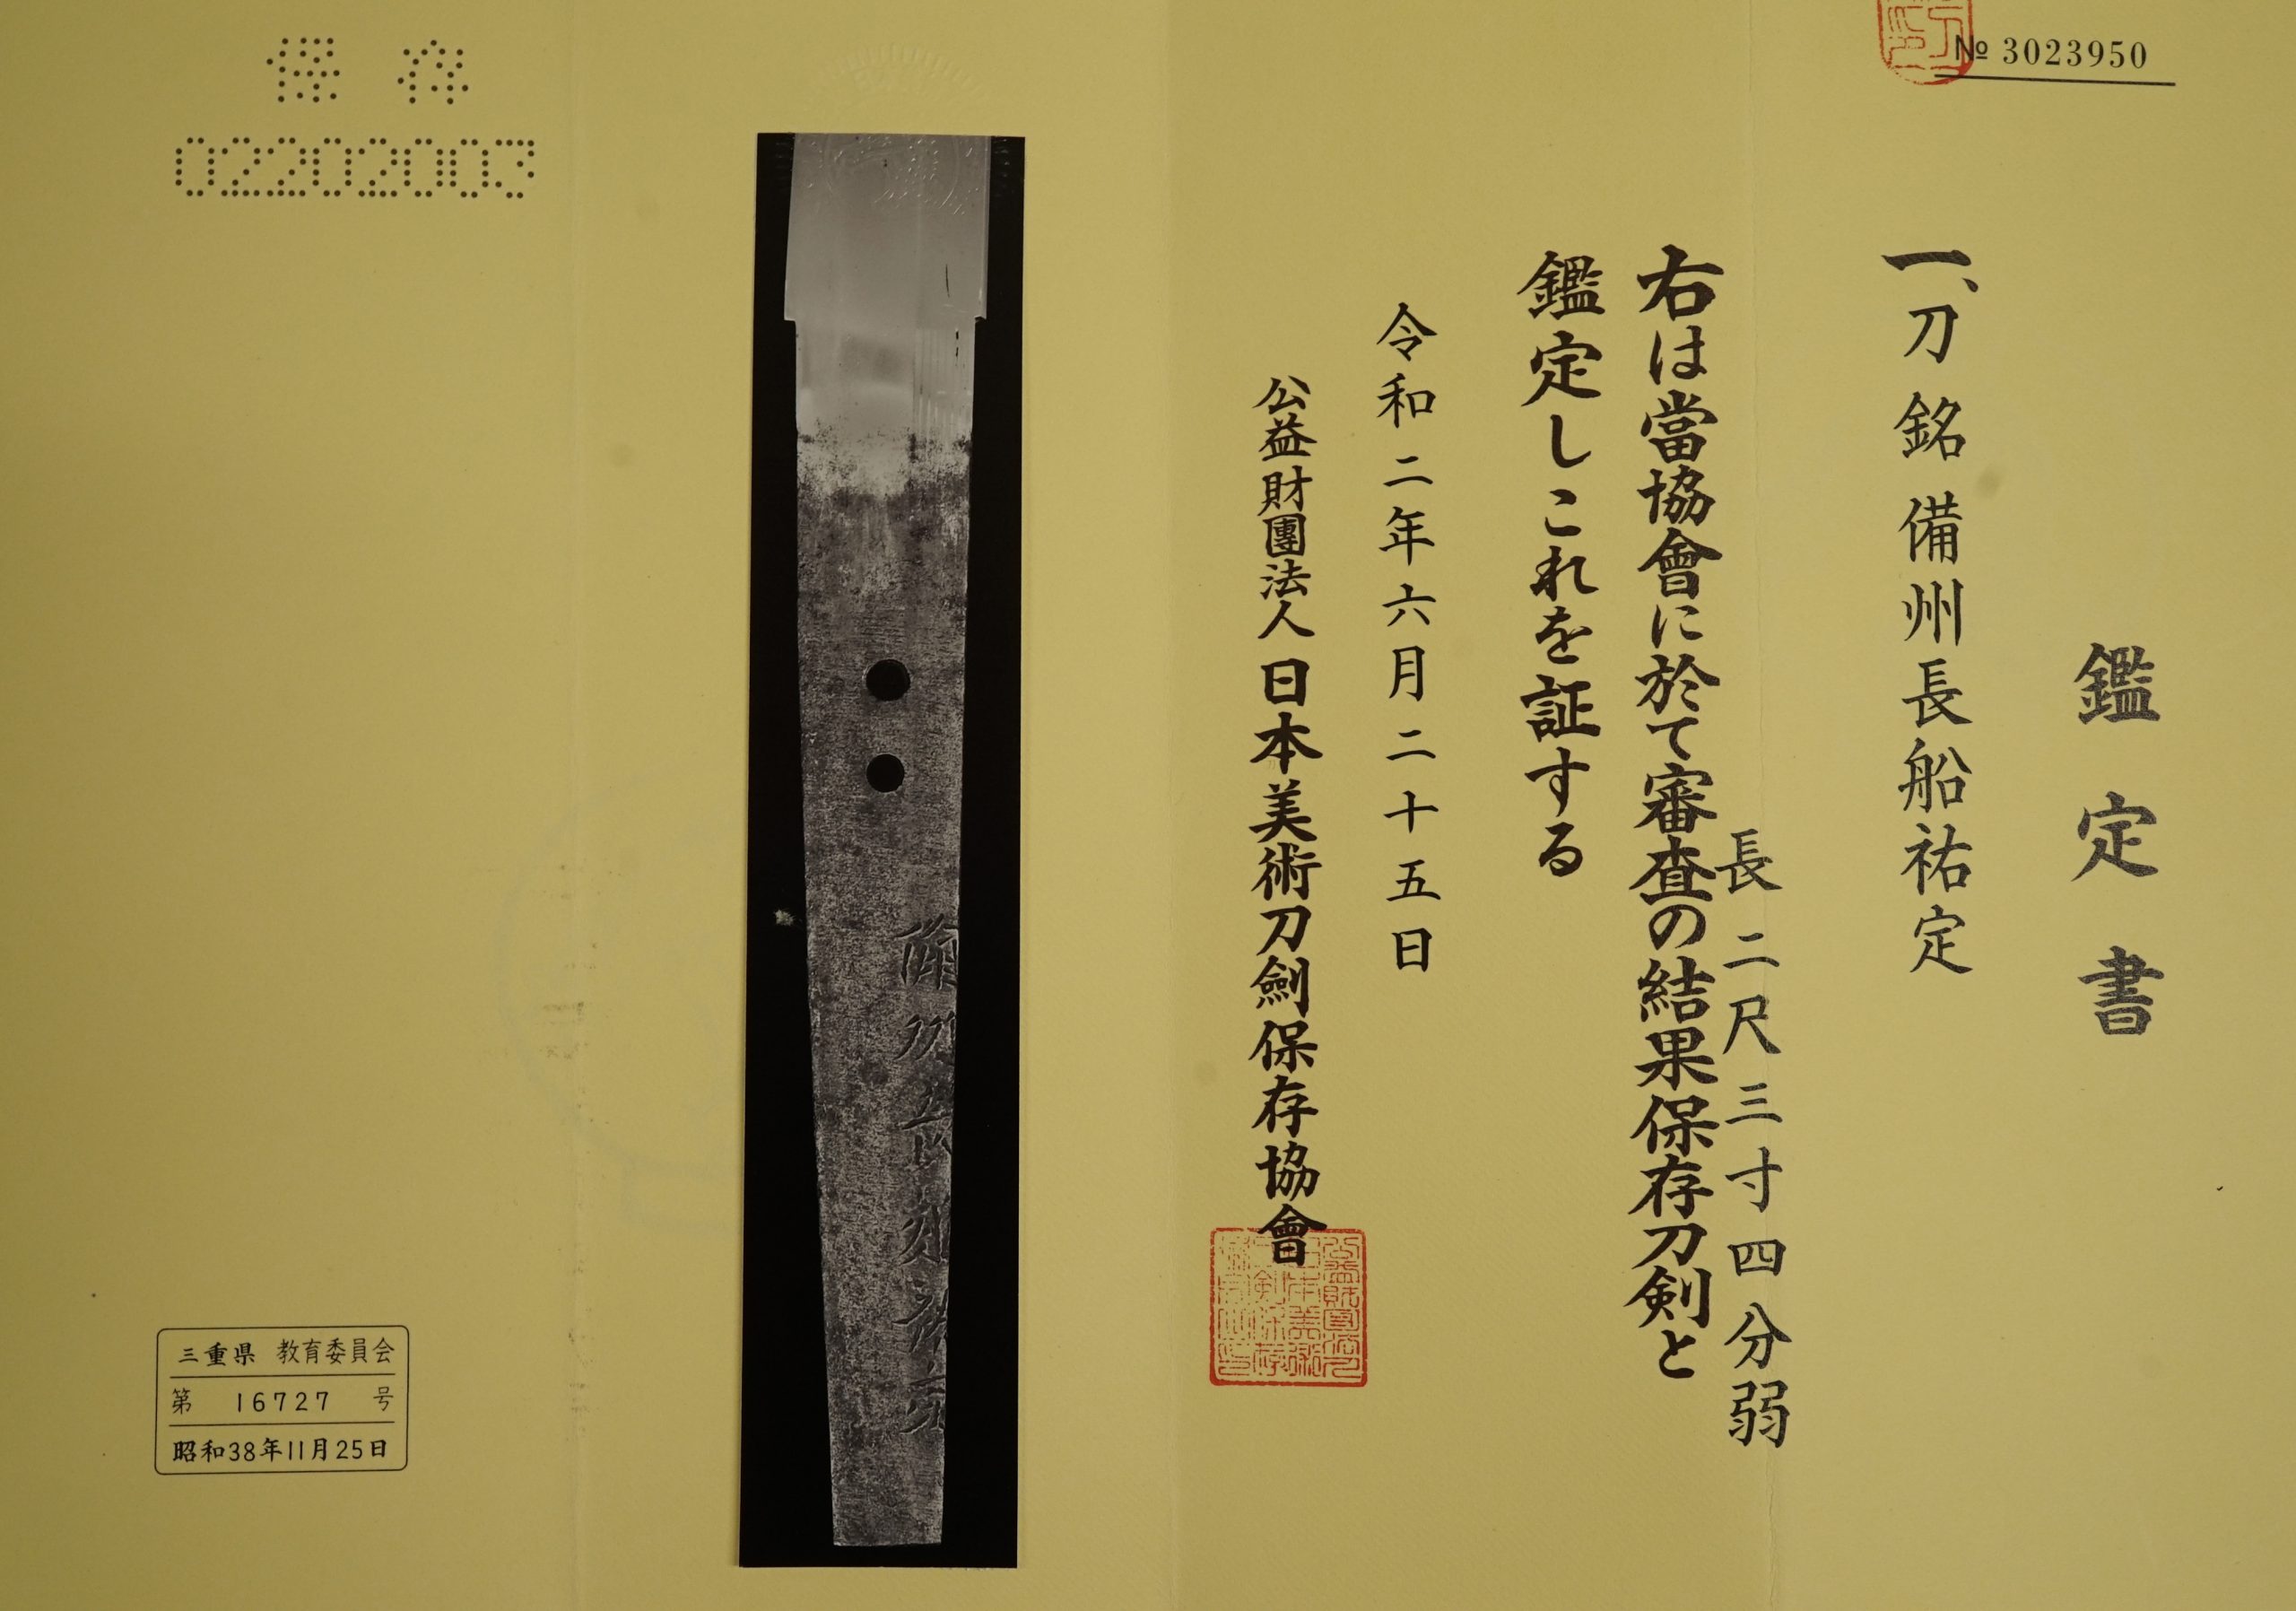 № 3023950
鑑定書
一、刀 銘 備州長船祐定
長 二尺三寸四分弱
右は當協會に於て審査の結果保存刀剣と
鑑定しこれを証する
令和二年六月二十五日
公益財團法人 日本美術刀劍保存協會
備州長船祐定
保存
02202003
三重県 教育委員会
第 16727 号
昭和38年11月25日